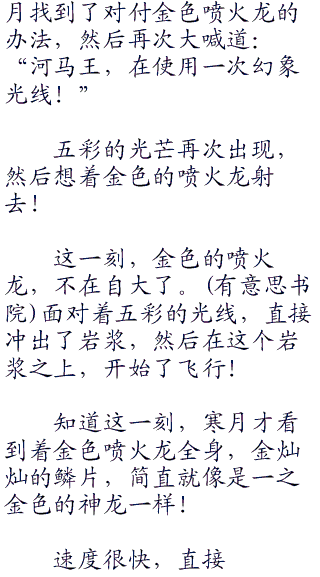 月找到了对付金色喷火龙的
办法，然后再次大喊道：
“河马王，在使用一次幻象
光线！”
五彩的光芒再次出现，
然后想着金色的喷火龙射
去！
这一刻，金色的喷火
龙，不在自大了。(有意思书
院)面对着五彩的光线，直接
冲出了岩浆，然后在这个岩
浆之上，开始了飞行！
知道这一刻，寒月才看
到着金色喷火龙全身，金灿
灿的鳞片，简直就像是一之
金色的神龙一样！
速度很快，直接